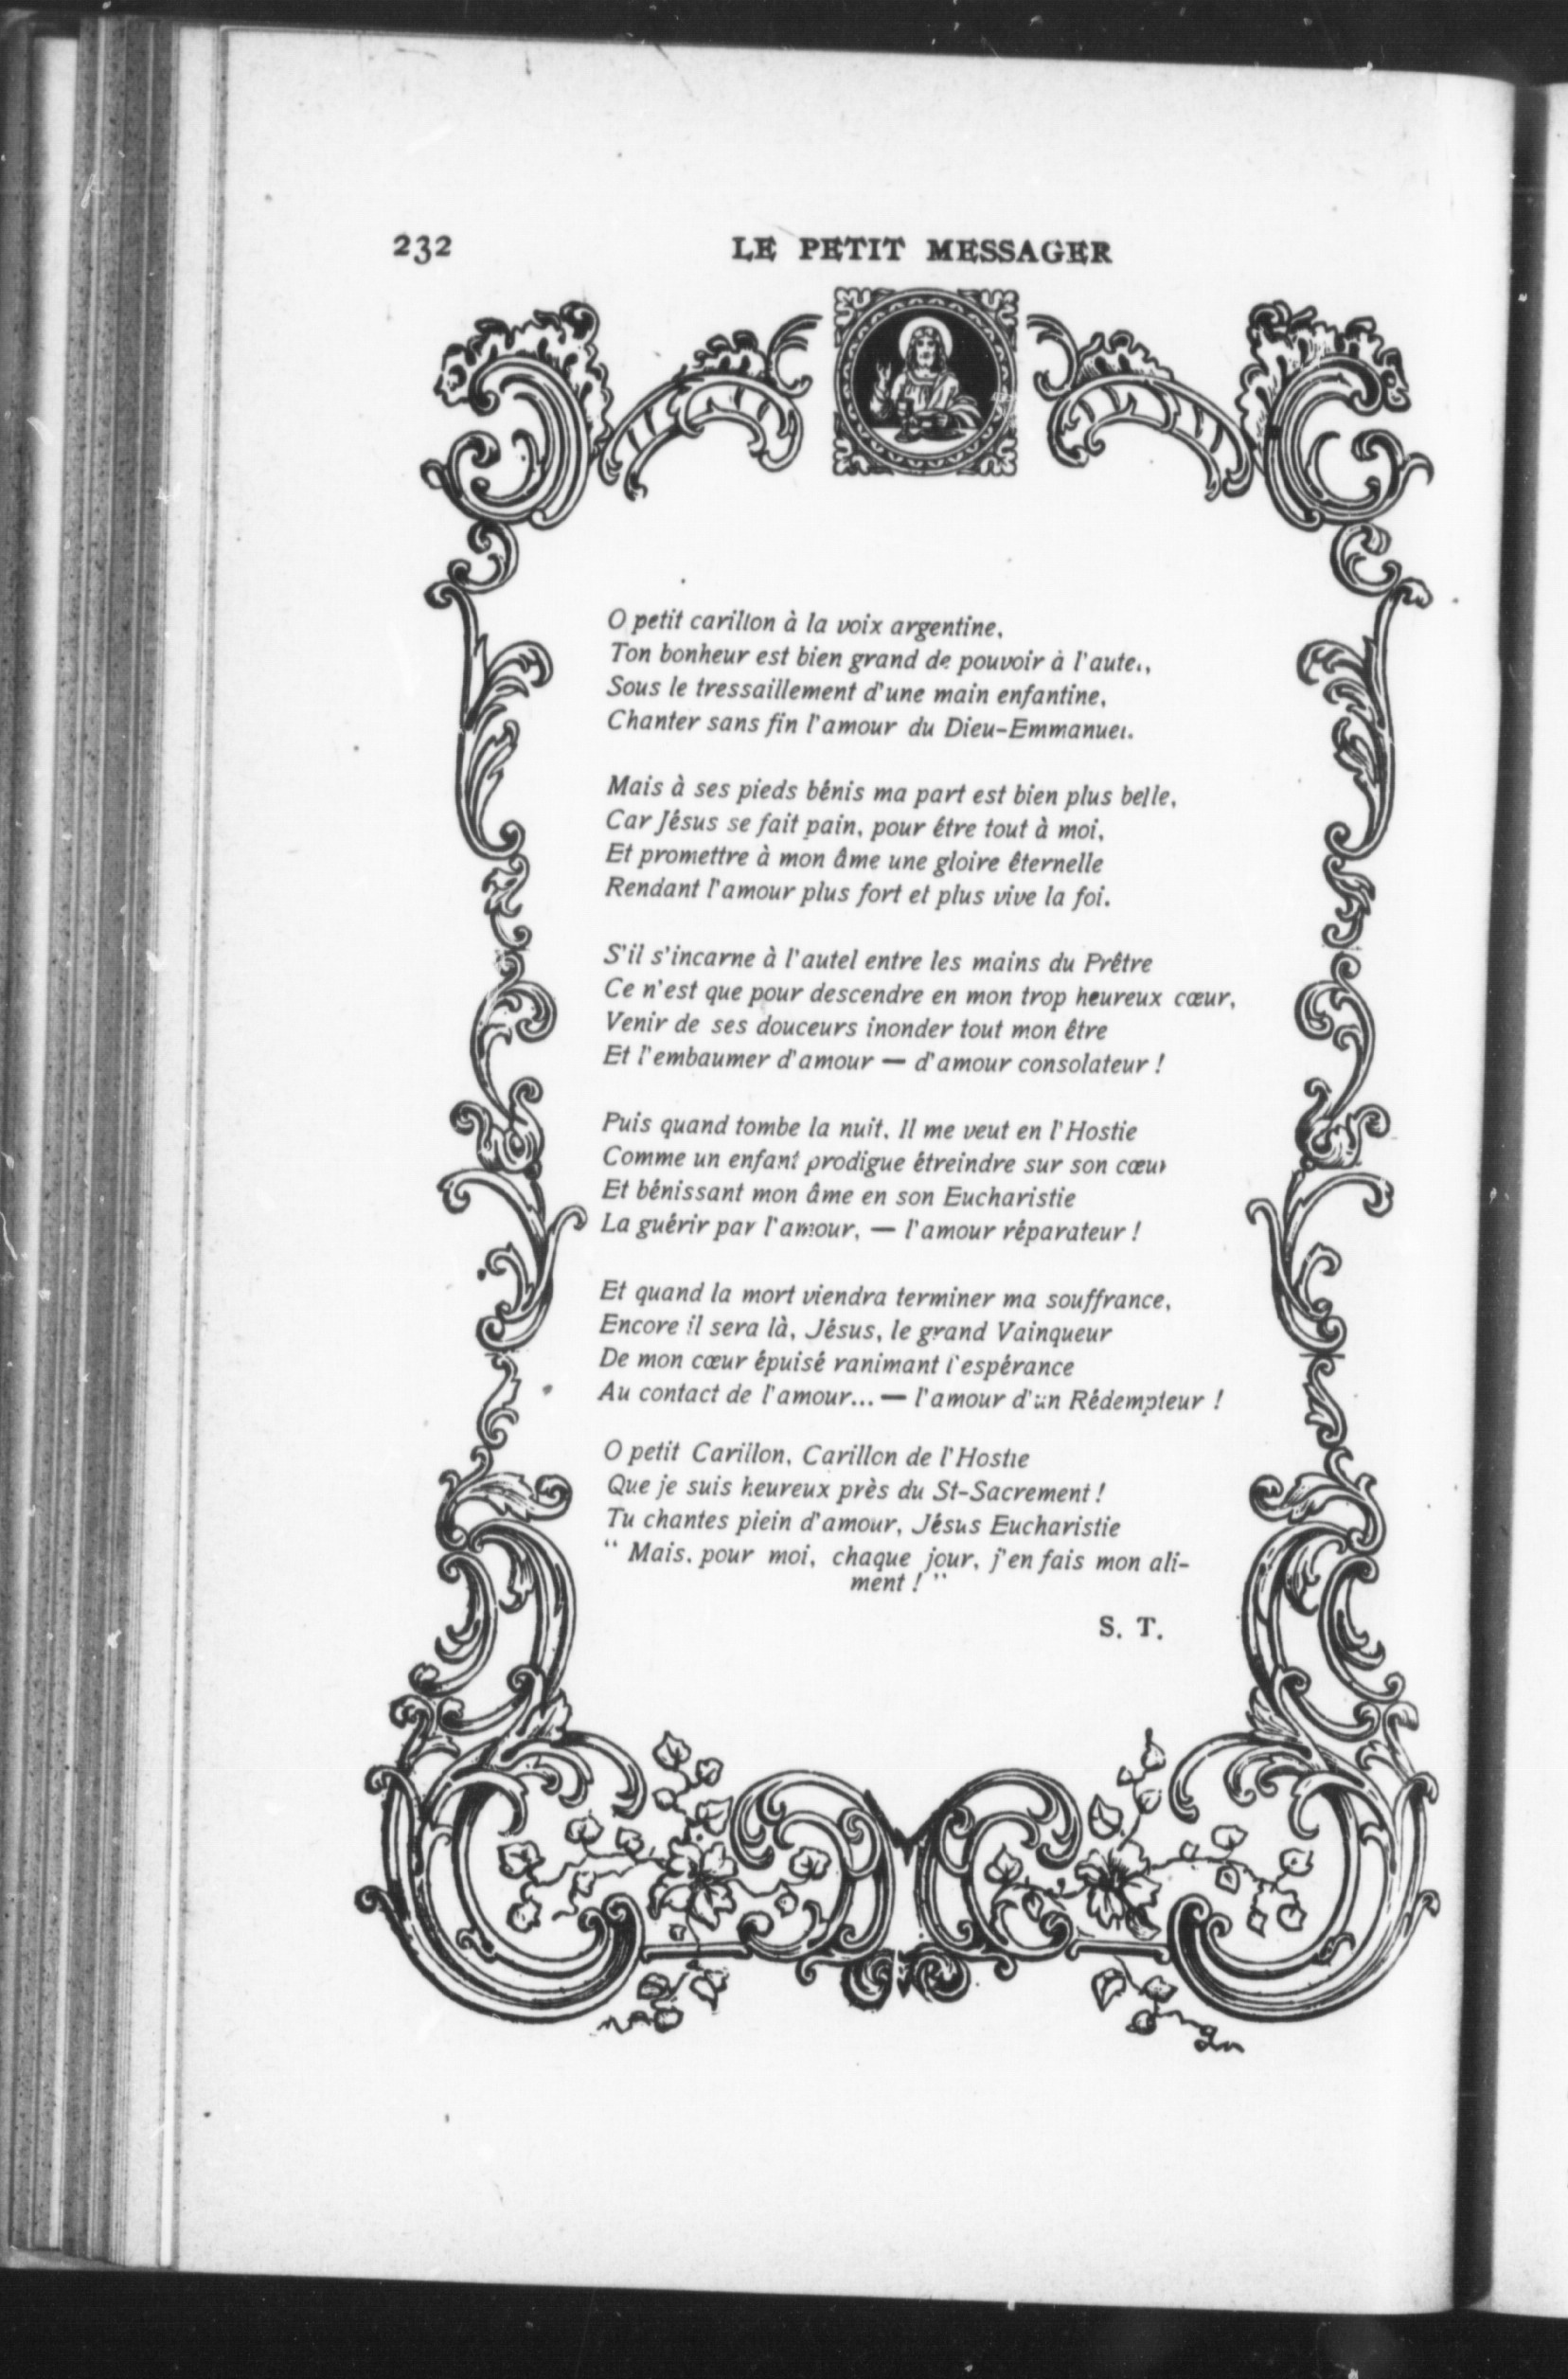 232 LE PETIT MESSAGER
O petit carillon à la voix argentine,
Ton bonheur est bien grand de pouvoir à l'autel,
Sous le tressaillement d'une main enfantine,
Chanter sans fin l'amour du Dieu-Emmanuel.
Mais à ses pieds bénis ma part est bien plus belle,
Car Jésus se fait pain, pour être tout à moi,
Et promettre à mon âme une gloire éternelle
Rendant l'amour plus fort et plus vive la foi.
S'il s'incarne à l'autel entre les mains du Prêtre
Ce n'est que pour descendre en mon trop heureux cœur,
Venir de ses douceurs inonder tout mon être
Et l'embaumer d'amour — d'amour consolateur !
Puis quand tombe la nuit, Il me veut en l'Hostie
Comme un enfant prodigue étreindre sur son cœur
Et bénissant mon âme en son Eucharistie
La guérir par l'amour, — l'amour réparateur !
Et quand la mort viendra terminer ma souffrance,
Encore il sera là, Jésus, le grand Vainqueur
De mon cœur épuisé ranimant l'espérance
Au contact de l'amour... — l'amour d'un Rédempteur !
O petit Carillon, Carillon de l'Hostie
Que je suis heureux près du St-Sacrement !
Tu chantes plein d'amour, Jésus Eucharistie
“ Mais, pour moi, chaque jour, j'en fais mon ali-
ment ! ”
S. T.